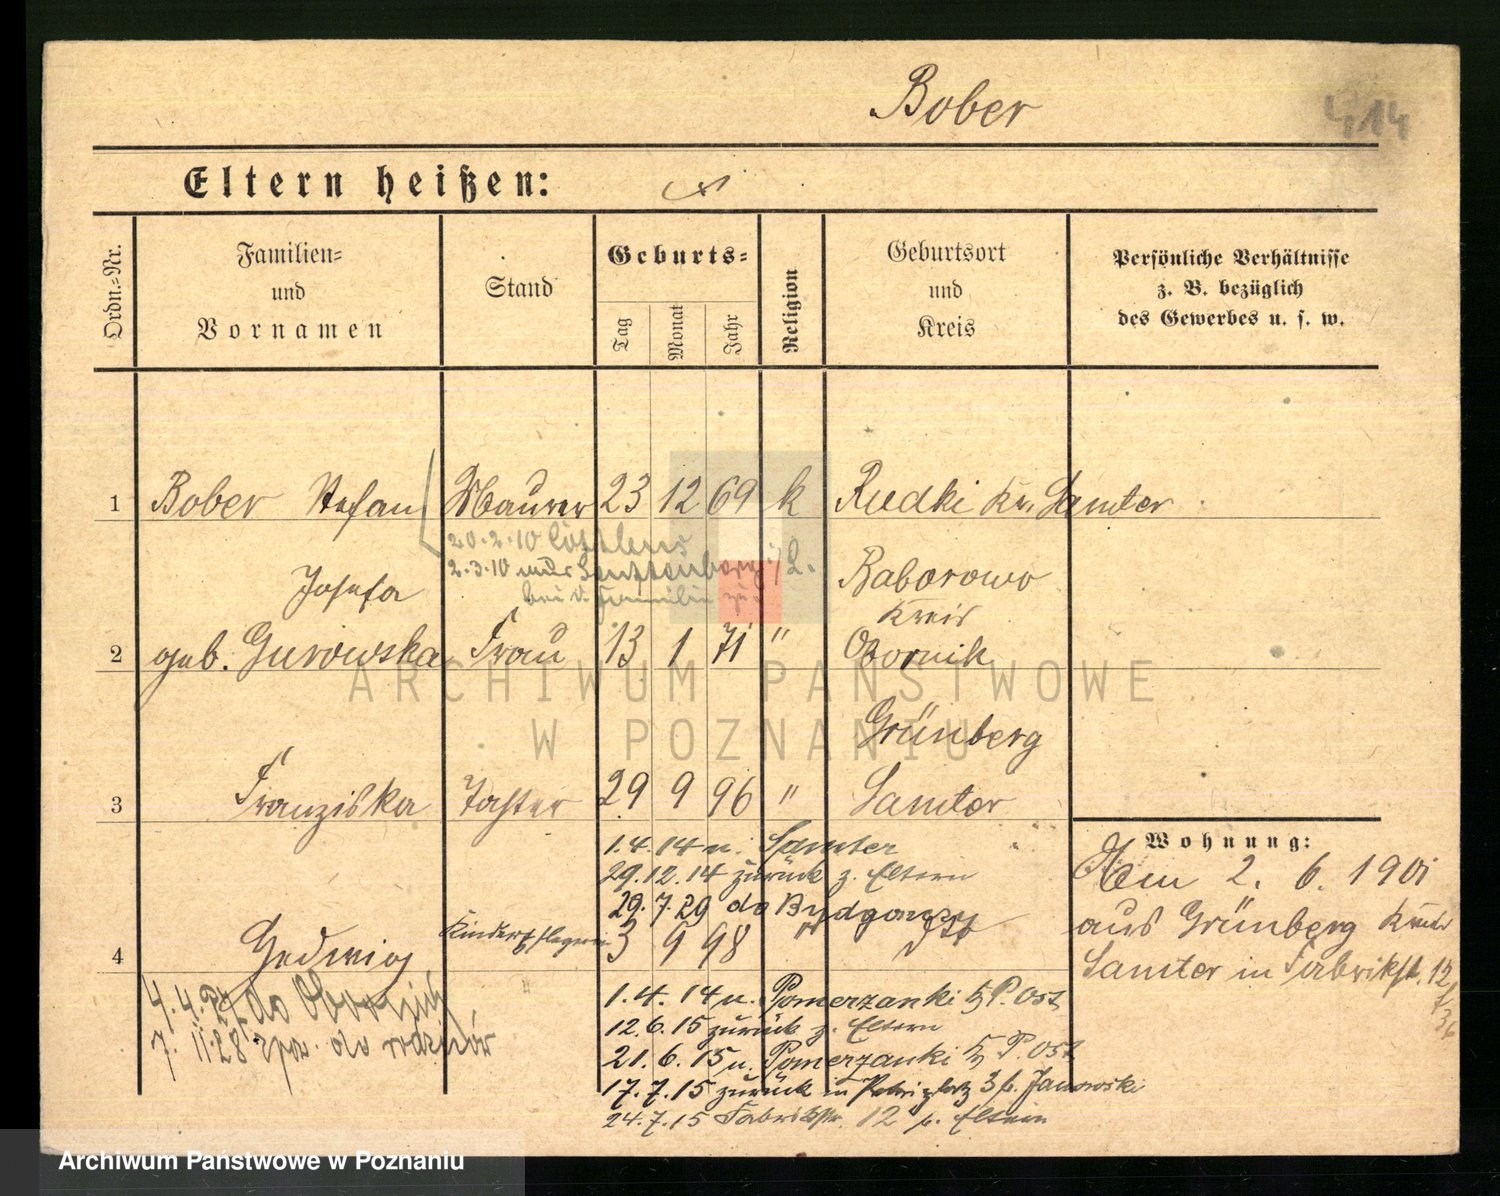 Bober
414
Eltern heißen:
Ordn.-Nr.
Familien-
und
Vornamen
Stand
Geburts-
Tag
Monat
Jahr
Religion
Geburtsort
und
Kreis
Persönliche Verhältnisse
z. B. bezüglich
des Gewerbes u. s. w.
1 Bober Stefan Maurer 23 12 69 k Rudki Kr. Samter
20.2.10 Cottbus
2.3.10 aus Senftenberg i/L.
Josefa
Baborowo
Kreis
2 geb. Gurowska Frau 13 1 71 " Obornik
Grünberg
3 Franziska Tochter 29 9 96 " Samter
1.4.14 n. Samter
29.12.14 zurück z. Eltern
29.7.29 do Bydgoszcz
4 Hedwig Kinderpflegerin 3 9 98 "
4.4.27 do Obornik
7.11.28 do rodziców
1.4.14 n. Pomerzanki Kr. P. Ost
12.6.15 zurück z. Eltern
21.6.15 n. Pomerzanki Kr. P. Ost
17.7.15 zurück in Petriplatz 3 b. Janowski
24.7.15 Fabrikstr. 12 b. Eltern
Wohnung:
Am 2. 6. 1901
aus Grünberg Kreis
Samter in Fabrikst. 12
ARCHIWUM PAŃSTWOWE
W POZNANIU
Archiwum Państwowe w Poznaniu